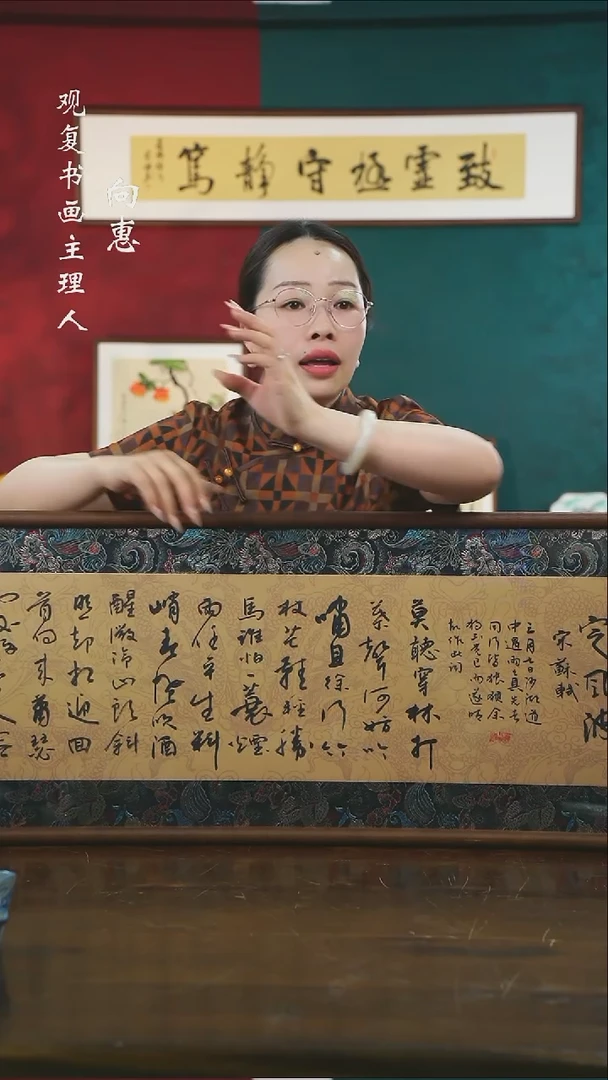 观复书画主理人
向惠
致虚極守静篤
定风波
宋蘇軾
三月七日沙湖道
中遇雨雨具先去
同行皆狼狽余
獨不覺已而遂晴
故作此词
莫聽穿林打
葉聲何妨吟
嘯且徐行竹
杖芒鞋輕勝
馬誰怕一蓑煙
雨任平生料
峭春風吹酒
醒微冷山頭斜
照却相迎回
首向来蕭瑟